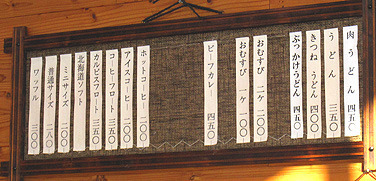 肉うどん 四五〇
うどん 三五〇
きつねうどん 四〇〇
ぶっかけうどん 四五〇
おむすび 二ケ 二〇〇
おむすび 一ケ 一〇〇
ビーフカレー 四五〇
ホットコーヒー 二〇〇
アイスコーヒー 二〇〇
コーヒーフロート 三五〇
カルピスフロート 三五〇
北海道ソフト
ミニサイズ 二〇〇
普通サイズ 二八〇
ワッフル 三〇〇